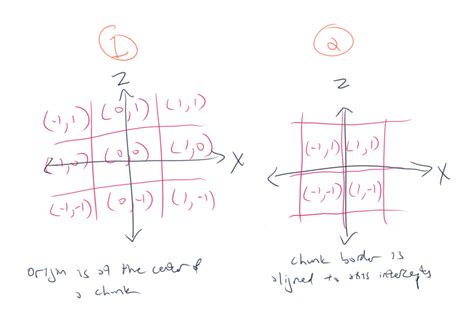 1
Z
(-1,1) (0,1) (1,1)
(-1,0) (0,0) (1,0) X
(-1,-1) (0,-1) (1,-1)
origin is at the center of
a chunk
2
Z
(-1,1) (1,1)
X
(-1,-1) (1,-1)
chunk border is
aligned to axis intercepts